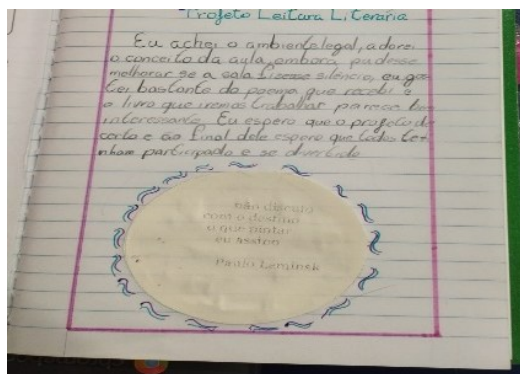 Projeto Leitura Literária
Eu achei o ambiente legal, adorei
o conceito da aula, embora pudesse
melhorar se a sala fizesse silêncio, eu gos-
tei bastante do poema que recebi e
o livro que iremos trabalhar parece be
interessante. Eu espero que o projeto dê
certo e ao final dele espero que todos te-
nham participado e se divertido
não discuto
com o destino
o que pintar
eu assino
Paulo Leminsk